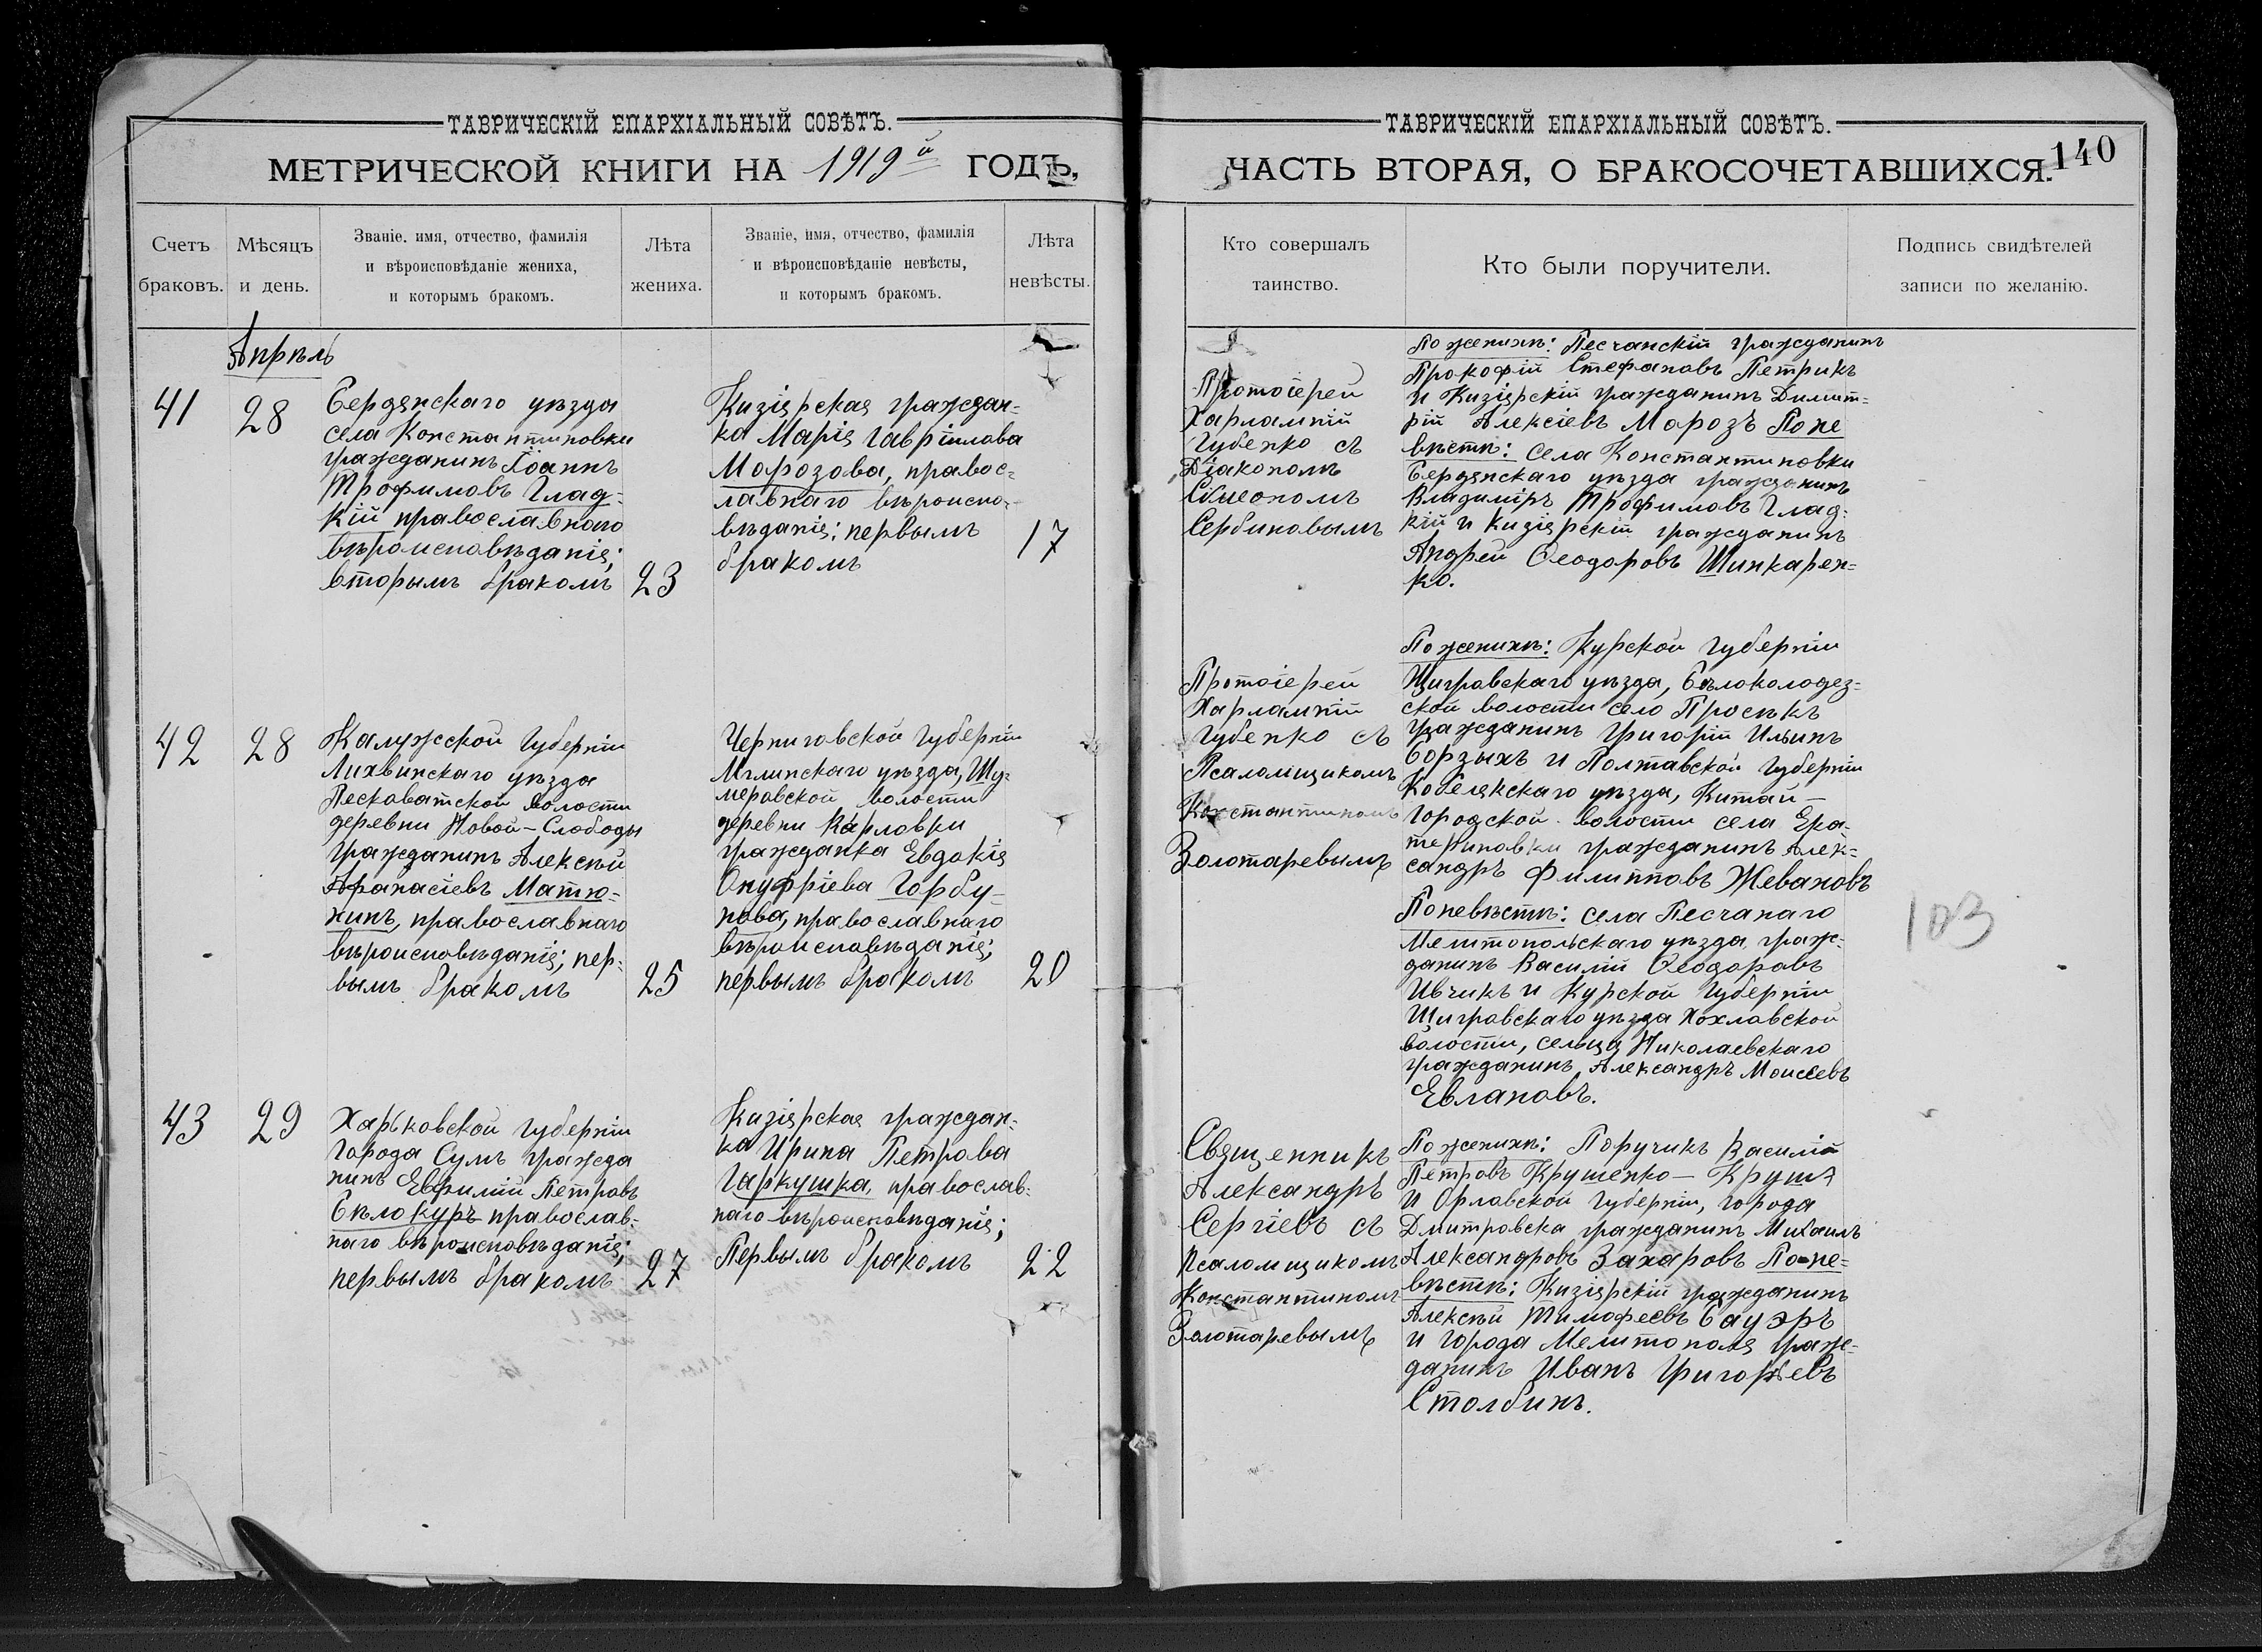 ТАВРИЧЕСКІЙ ЕПАРХІАЛЬНЫЙ СОВѢТЪ.
МЕТРИЧЕСКОЙ КНИГИ НА 1919й ГОДЪ,
Счетъ
браковъ.
Мѣсяцъ
и день.
Званіе, имя, отчество, фамилія
и вѣроисповѣданіе жениха,
и которымъ бракомъ.
Лѣта
жениха.
Званіе, имя, отчество, фамилія
и вѣроисповѣданіе невѣсты,
и которымъ бракомъ.
Лѣта
невѣсты.
Апрѣль
41
28
Бердянскаго уѣзда
села Константиновки
гражданинъ Іоаннъ
Трофимовъ Глад-
кій православнаго
вѣроисповѣданія;
вторымъ бракомъ
23
Кизіярская граждан-
ка Марія Гавріилова
Морозова, правос-
лавнаго вѣроиспо-
вѣданія; первымъ
бракомъ
17
42
28
Калужской губерніи
Лихвинскаго уѣзда
Песковатской волости
деревни Новой-Слободы
гражданинъ Алексѣй
Афанасіевъ Матю-
хинъ, православнаго
вѣроисповѣданія; пер-
вымъ бракомъ
25
Черниговской губерніи
Мглинскаго уѣзда, Шу-
меровской волости
деревни Карловки
гражданка Евдокія
Онуфріева Горбу-
нова, православнаго
вѣроисповѣданія;
первымъ бракомъ
20
43
29
Харьковской губерніи
города Сумъ гражда
нинъ Евфимій Петровъ
Бѣлокуръ православ-
наго вѣроисповѣданія;
первымъ бракомъ
27
Кизіярская граждан-
ка Ирина Петрова
Гаркушка, православ-
наго вѣроисповѣданія;
Первымъ бракомъ
22
ТАВРИЧЕСКІЙ ЕПАРХІАЛЬНЫЙ СОВѢТЪ.
ЧАСТЬ ВТОРАЯ, О БРАКОСОЧЕТАВШИХСЯ.
140
Кто совершалъ
таинство.
Кто были поручители.
Подпись свидѣтелей
записи по желанію.
Протоіерей
Харлампій
Губенко съ
Діакономъ
Сѵмеономъ
Сербиновымъ
По женихѣ: Песчанскій гражданинъ
Прокофій Стефановъ Петрикъ
и Кизіярскій гражданинъ Димит-
рій Алексіевъ Морозъ По не
вѣстѣ: села Константиновки
Бердянскаго уѣзда гражданинъ
Владиміръ Трофимовъ Глад-
кій и Кизіярскій гражданинъ
Андрей Ѳеодоровъ Шинкарен-
ко.
Протоіерей
Харлампій
Губенко съ
Псаломщикомъ
Константиномъ
Золотаревымъ
По женихѣ: Курской губерніи
Щигровскаго уѣзда, Бѣлоколодез-
ской волости село Просѣкъ
гражданинъ Григорій Ильинъ
Борзыхъ и Полтавской губерніи
Кобелякскаго уѣзда, Китай-
городской волости села Ека-
териновки гражданинъ Алек-
сандръ Филипповъ Жевановъ
По невѣстѣ: села Песчанаго
Мелитопольскаго уѣзда граж-
данинъ Василій Ѳеодоровъ
Ивчикъ и Курской губерніи
Щигровскаго уѣзда Хохловской
волости, сельца Николаевскаго
гражданинъ Александръ Моисеевъ
Евлановъ.
103
Священникъ
Александръ
Сергіевъ съ
псаломщикомъ
Константиномъ
Золотаревымъ
По женихѣ: Поручикъ Василій
Петровъ Крушенко-Круша
и Орловской губерніи, города
Дмитровска гражданинъ Михаилъ
Александровъ Захаровъ По не-
вѣстѣ: Кизіярскій гражданинъ
Алексѣй Тимофеевъ Бауэръ
и города Мелитополя граж-
данинъ Иванъ Григорьевъ
Столбинъ.